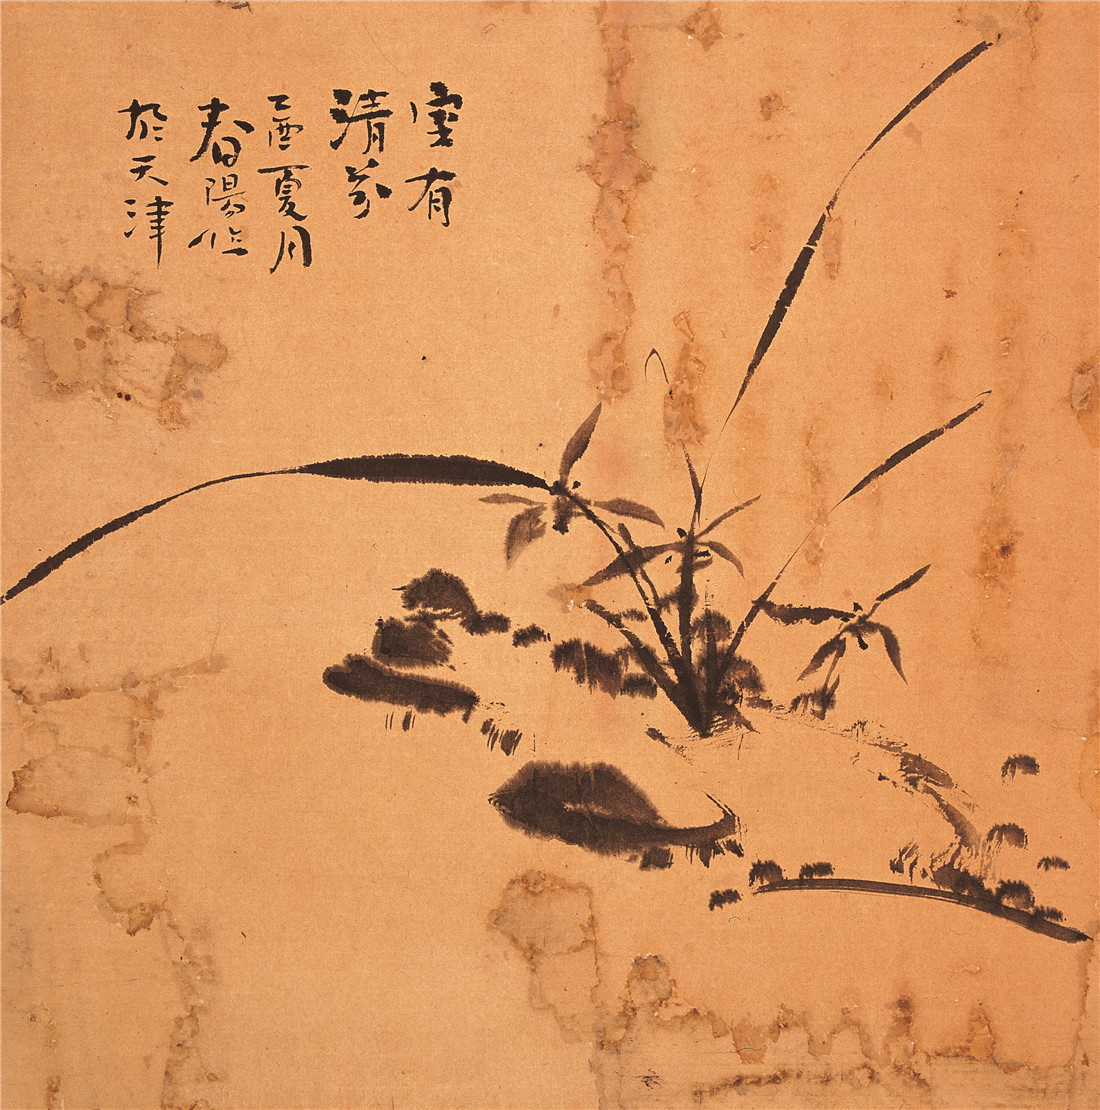 室有
清芬
乙酉夏月
春陽作
於天津